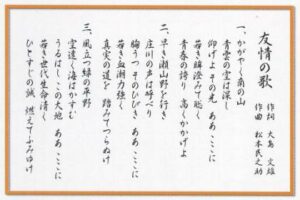 友情の歌
作詞 大島文雄
作曲 松本民之助
一、かがやく南の山
青雲の空は深し
仰げよ その光 ああ ここに
若き瞳澄みて聡く
青春の誇り 高くかかげよ
二、早き瀬 山野を行き
庄川の声は呼べり
胸うつ そのひびき ああ ここに
若き血潮力強く
真実の道を 踏みてつらぬけ
三、風立つ 緑の平野
空遠く海はかすむ
うるはし この大地 ああ ここに
若き世代生命清く
ひとすじの誠 燃えてふみゆけ